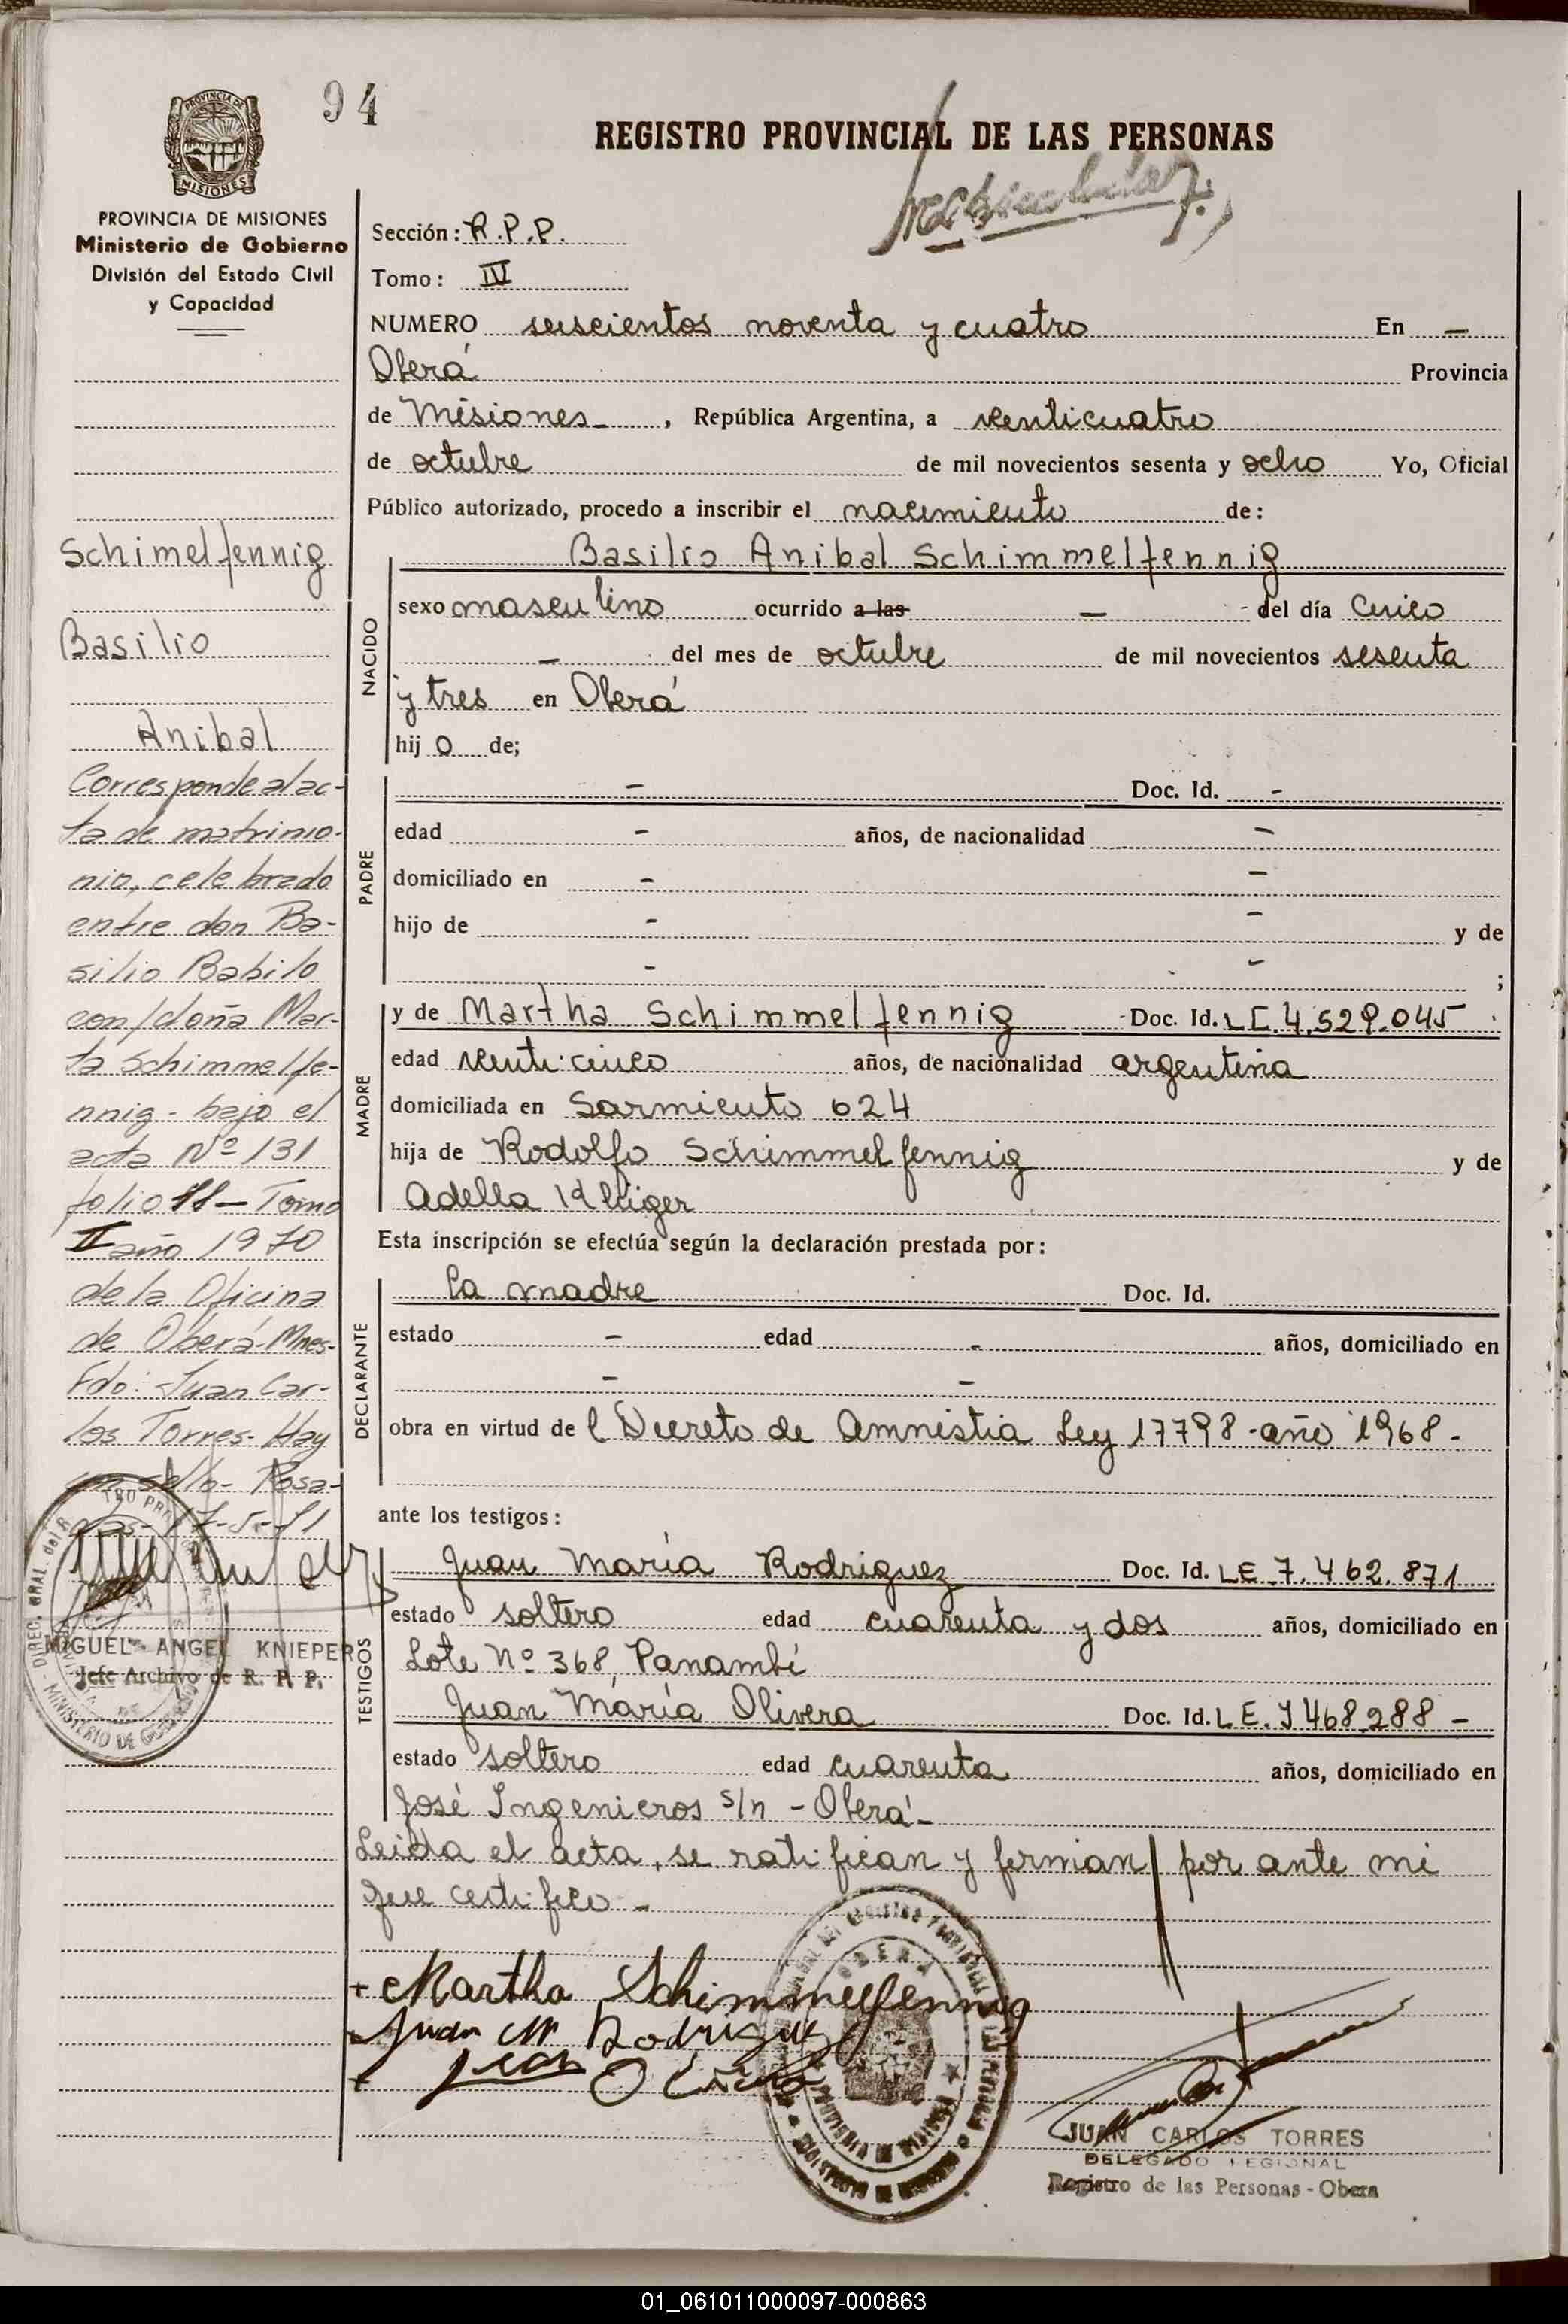 94
REGISTRO PROVINCIAL DE LAS PERSONAS
PROVINCIA DE MISIONES
Ministerio de Gobierno
División del Estado Civil
y Capacidad
Sección: R.P.P.
Tomo: IV
NUMERO seiscientos noventa y cuatro En —
Oberá Provincia
de Misiones , República Argentina, a venticuatro
de octubre de mil novecientos sesenta y ocho Yo, Oficial
Público autorizado, procedo a inscribir el nacimiento de:
Schimelfennig
Basilio
Anibal
Corresponde al ac-
ta de matrimo-
nio, celebrado
entre don Ba-
silio Babilo
con/doña Mar-
ta Schimmelfe-
nnig - bajo el
acta Nº 131
folio 11 - Tomo
II año 1970
de la Oficina
de Oberá - Mnes-
Fdo: Juan Car-
los Torres - Hay
un sello - Posa-
das - 17-5-71
MIGUEL ANGEL KNIEPEROS
Jefe Archivo de R. P. P.
NACIDO
Basilio Anibal Schimmelfennig
sexo masculino ocurrido a las — del día cinco
— del mes de octubre de mil novecientos sesenta
y tres en Oberá
hijo de;
PADRE
— Doc. Id. -
edad - años, de nacionalidad -
domiciliado en - -
hijo de - - y de
- - ;
MADRE
y de Martha Schimmelfennig Doc. Id. LC. 4.529.045
edad venticinco años, de nacionalidad argentina
domiciliada en Sarmiento 624
hija de Rodolfo Schimmelfennig y de
Adella Klüger
Esta inscripción se efectúa según la declaración prestada por:
DECLARANTE
la madre Doc. Id.
estado - edad - años, domiciliado en
- -
obra en virtud del Decreto de Amnistia Ley 17798 - año 1968 -
ante los testigos:
TESTIGOS
Juan María Rodriguez Doc. Id. LE. 7.462.871
estado soltero edad cuarenta y dos años, domiciliado en
Lote Nº 368, Panambí
Juan María Olivera Doc. Id. L E. 7468.288 -
estado soltero edad cuarenta años, domiciliado en
José Ingenieros s/n - Oberá -
Leida el acta, se ratifican y firman por ante mi
que certifico -
Martha Schimmelfennig
Juan M Rodriguez
Juan Olivera
JUAN CARLOS TORRES
DELEGADO REGIONAL
Registro de las Personas - Obera
01_061011000097-000863